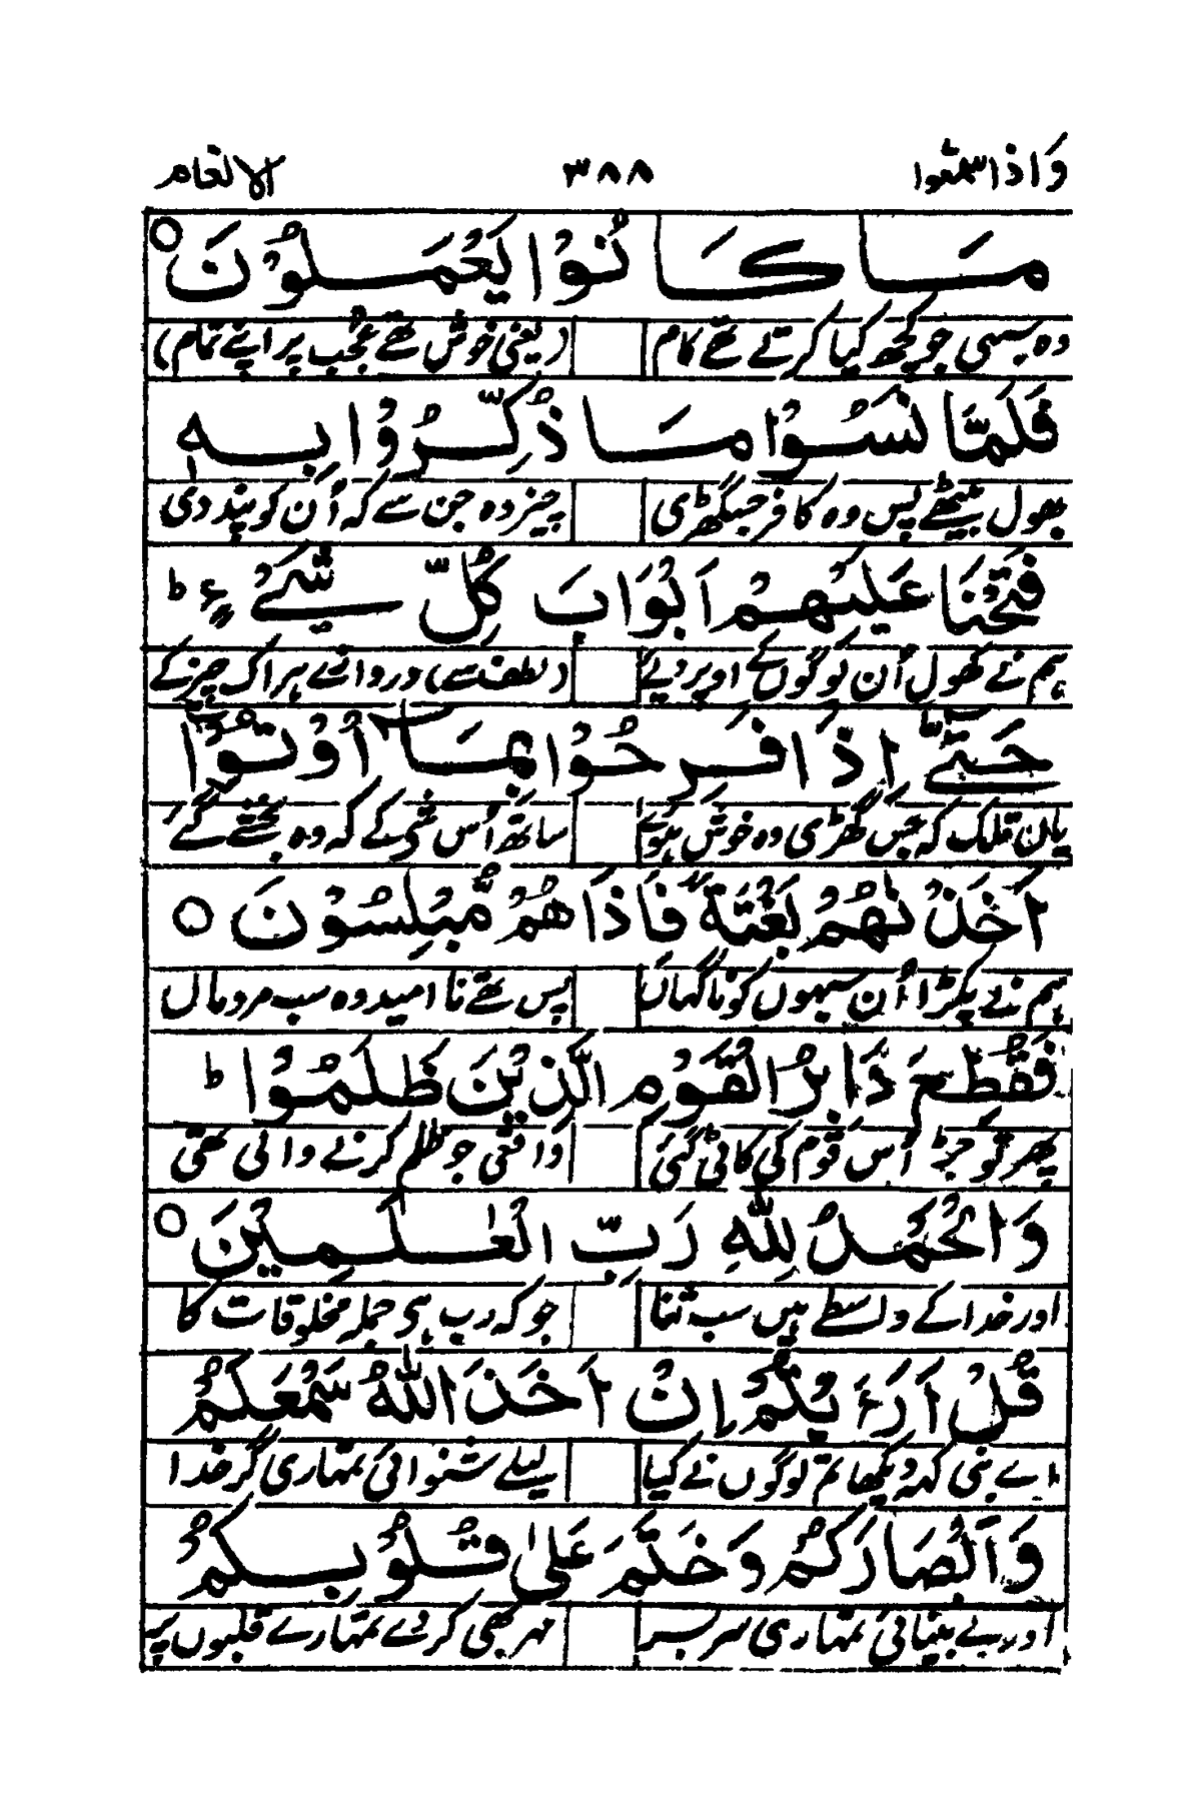 واذاسمعوا ۳۸۸ الانعام
مَا كَانُوْا يَعْمَلُوْنَ ○
وہ سبھی جو کچھ کیا کرتے تھے کام (یعنی خوش تھے عجب پر اپنے تمام)
فَلَمَّا نَسُوْا مَا ذُكِّرُوْا بِهٖ
بھول بیٹھے پس وہ کافر جس گھڑی چیز وہ جن سے کہ اُن کو پند دی
فَتَحْنَا عَلَيْهِمْ اَبْوَابَ كُلِّ شَيْءٍ ط
ہم نے کھول اُن لوگوں کے اوپر دیے (لطف سے) دروازے ہر اک چیز کے
حَتّٰى اِذَا فَرِحُوْا بِمَا اُوْتُوْا
یان تلک کہ جس گھڑی وہ خوش ہوئے ساتھ اُس شی کے کہ وہ بخشے گئے
اَخَذْنٰهُمْ بَغْتَةً فَاِذَا هُمْ مُّبْلِسُوْنَ ○
ہم نے پکڑا اُن سبھوں کو ناگہاں پس تھے نا امید وہ سب مردمان
فَقُطِعَ دَابِرُ الْقَوْمِ الَّذِيْنَ ظَلَمُوْا ط
پھر تو جڑ اُس قوم کی کاٹی گئی واقعی جو ظلم کرنے والی تھی
وَالْحَمْدُ لِلّٰهِ رَبِّ الْعٰلَمِيْنَ ○
اور خدا کے واسطے ہیں سب ثنا جو کہ رب ہی جملہ مخلوقات کا
قُلْ اَرَءَيْتُمْ اِنْ اَخَذَ اللّٰهُ سَمْعَكُمْ
اے نبی کہہ دیکھا تم لوگوں نے کیا لیلے شنوائی تمہاری گر خدا
وَاَبْصَارَكُمْ وَخَتَمَ عَلٰى قُلُوْبِكُمْ
اور لے بینائی تمہاری سر بسر مہر بھی کر دے تمہارے قلبوں پر